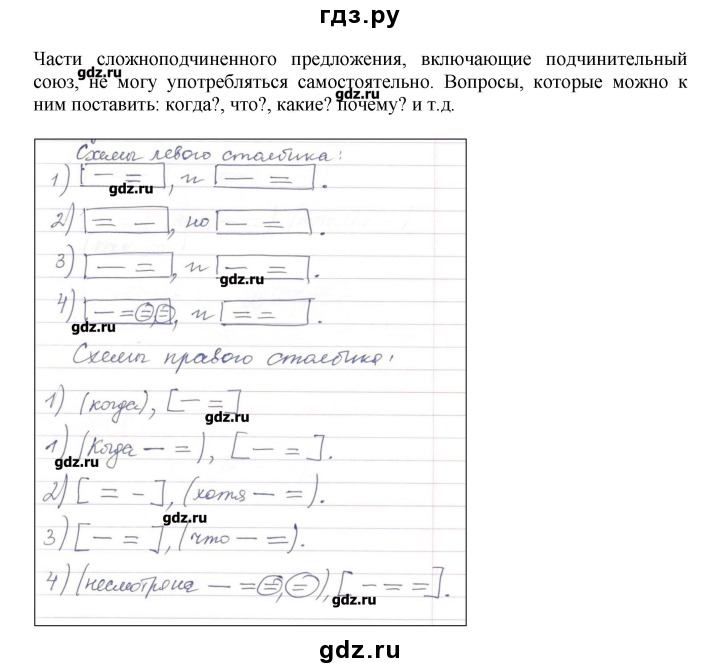 гдз.ру
Части сложноподчиненного предложения, включающие подчинительный
союз, не могу употребляться самостоятельно. Вопросы, которые можно к
ним поставить: когда?, что?, какие? почему? и т.д.
Схемы левого столбика:
1) [— =], и [— =].
2) [= —], но [— =].
3) [— =], и [— =].
4) [— = =, =], и [= =].
Схемы правого столбика:
1) (когда), [— =]
1) (Когда — =), [— =].
2) [= -], (хотя — =).
3) [— =], (что — =).
4) (несмотря на — = =, =), [— = = =].
gdz.ru
gdz.ru
gdz.ru
gdz.ru
gdz.ru
gdz.ru
gdz.ru
gdz.ru
gdz.ru
gdz.ru
gdz.ru